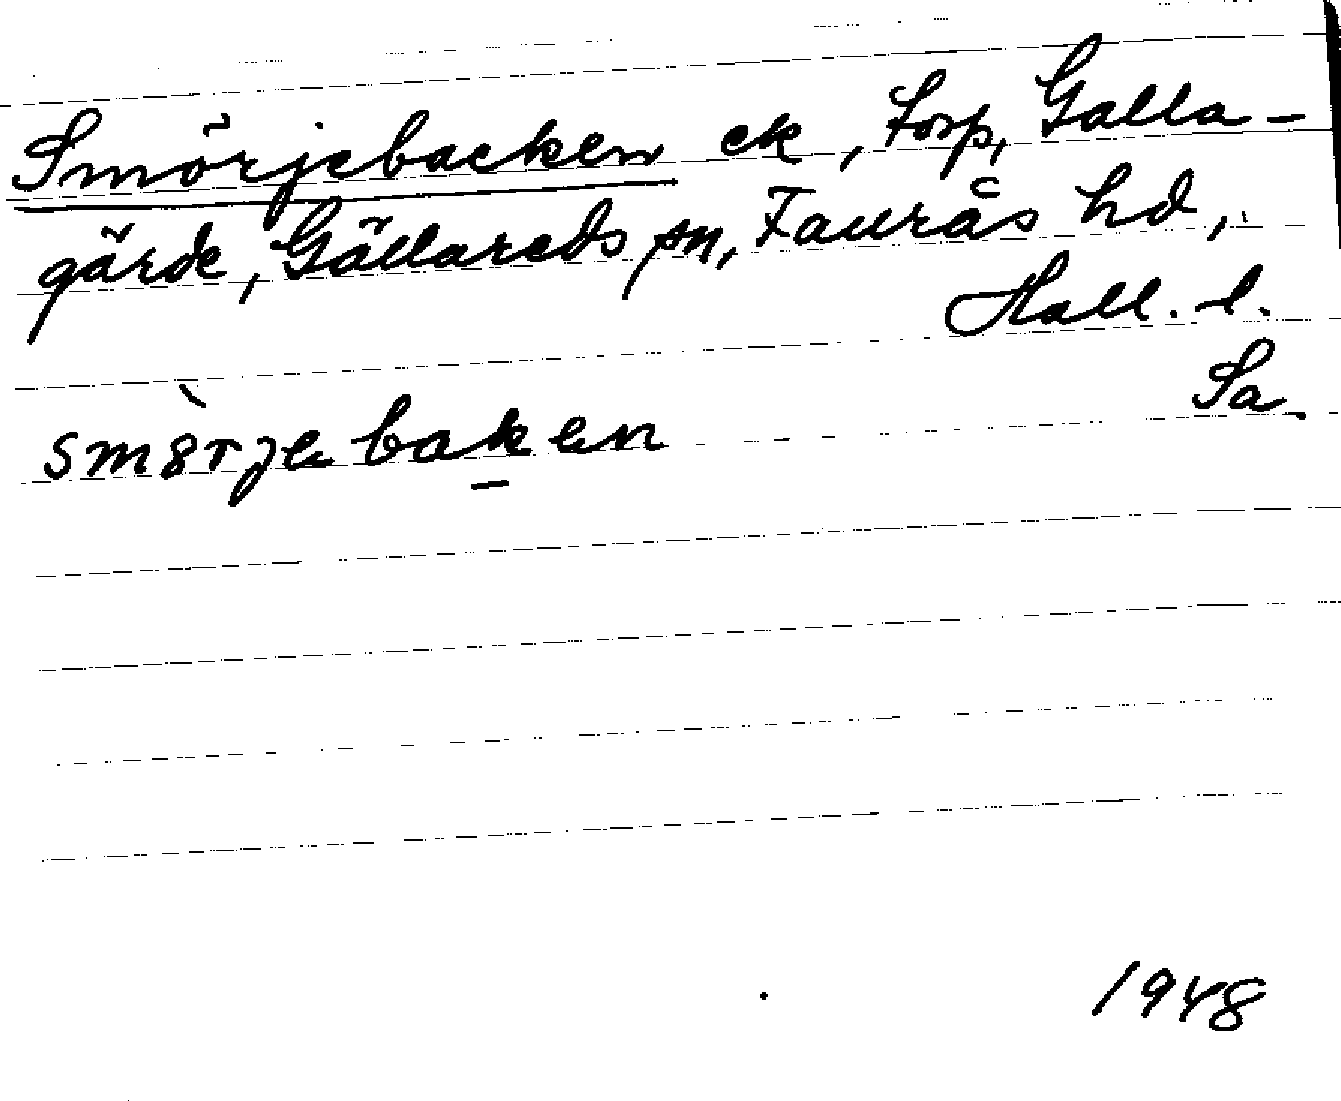 Smörjebacken ek, Torp, Galla-
gärde, Gällareds sn, Faurås hd,
Hall. l.
Sa.
smörjebaken
1948